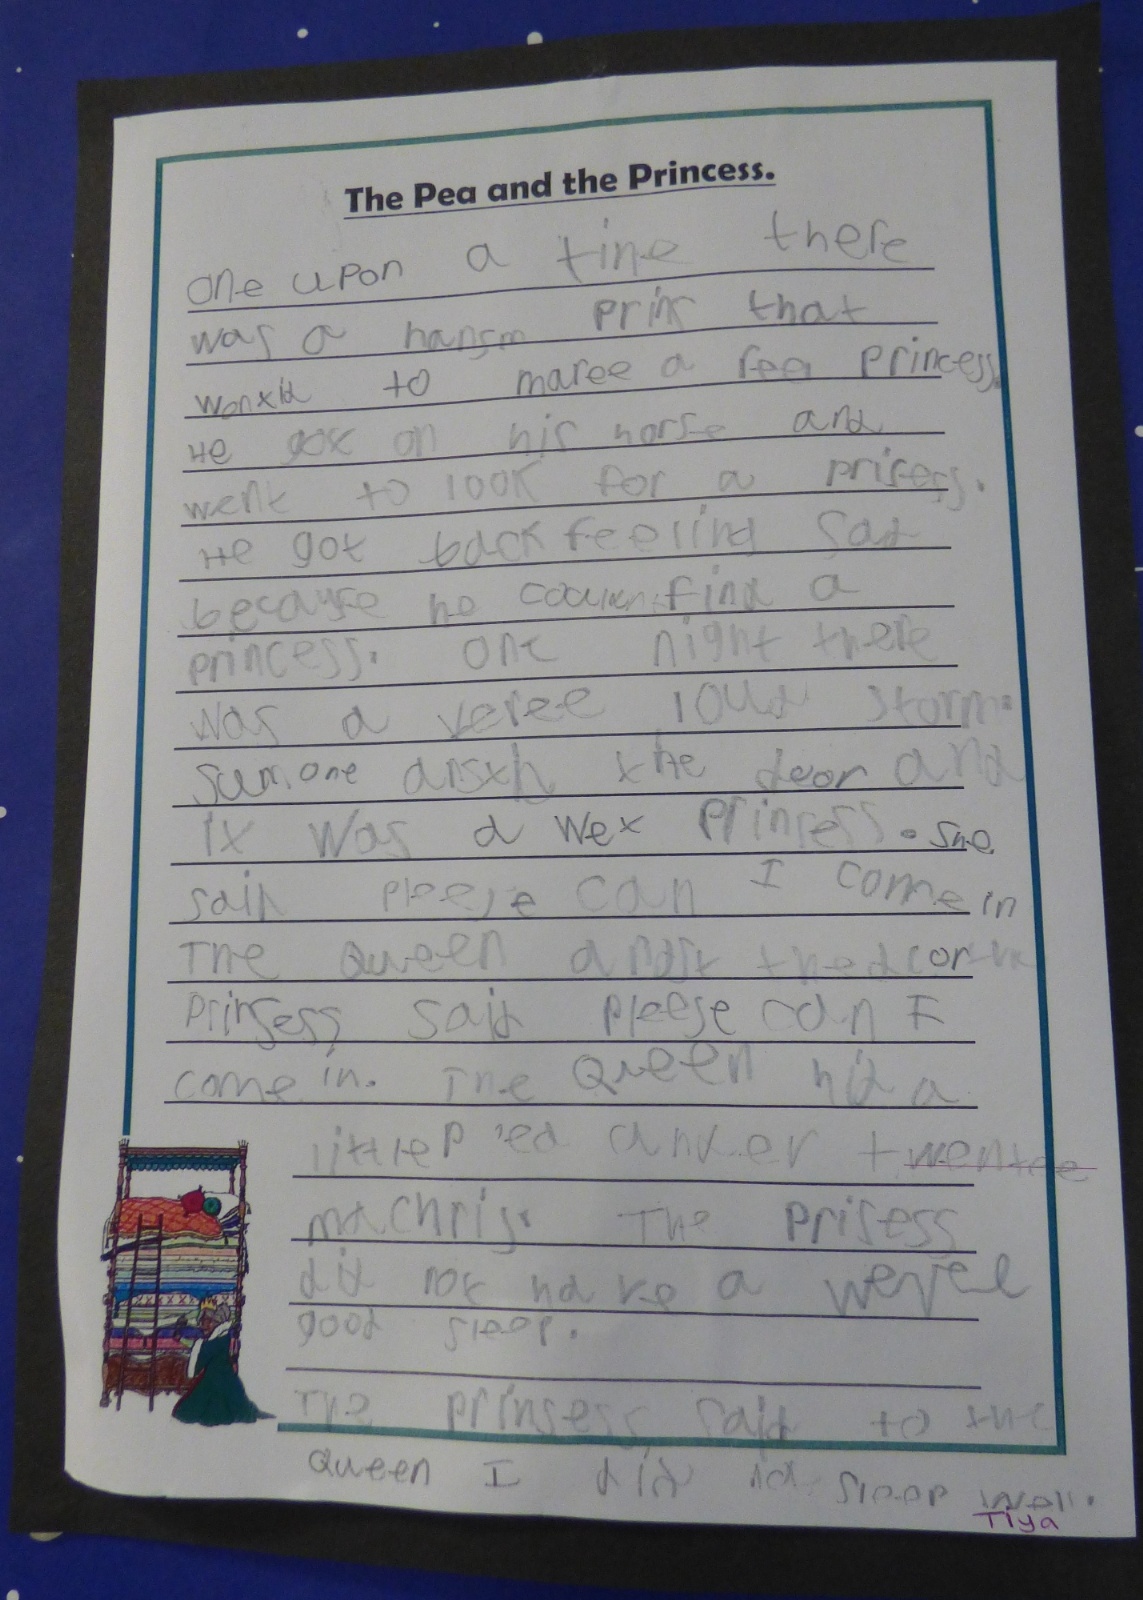 The Pea and the Princess.
one upon a time there
was a hansm prins that
to maree a reel princess.
He got on his horse and
went to look for a prisess.
He got back feeling sad
because he find a
princess. one night there
was a veree loud storm.
sumone the door and
It was a wet prinsess. she
said pleese can I come in
The Queen the door the
Prinsess said pleese can I
come in. The Queen hid a
little ped ander twentee
matchris. The prisess
did not have a veree
good sleep.
The prinsess said to the
Queen I did not sleep well.
Tiya